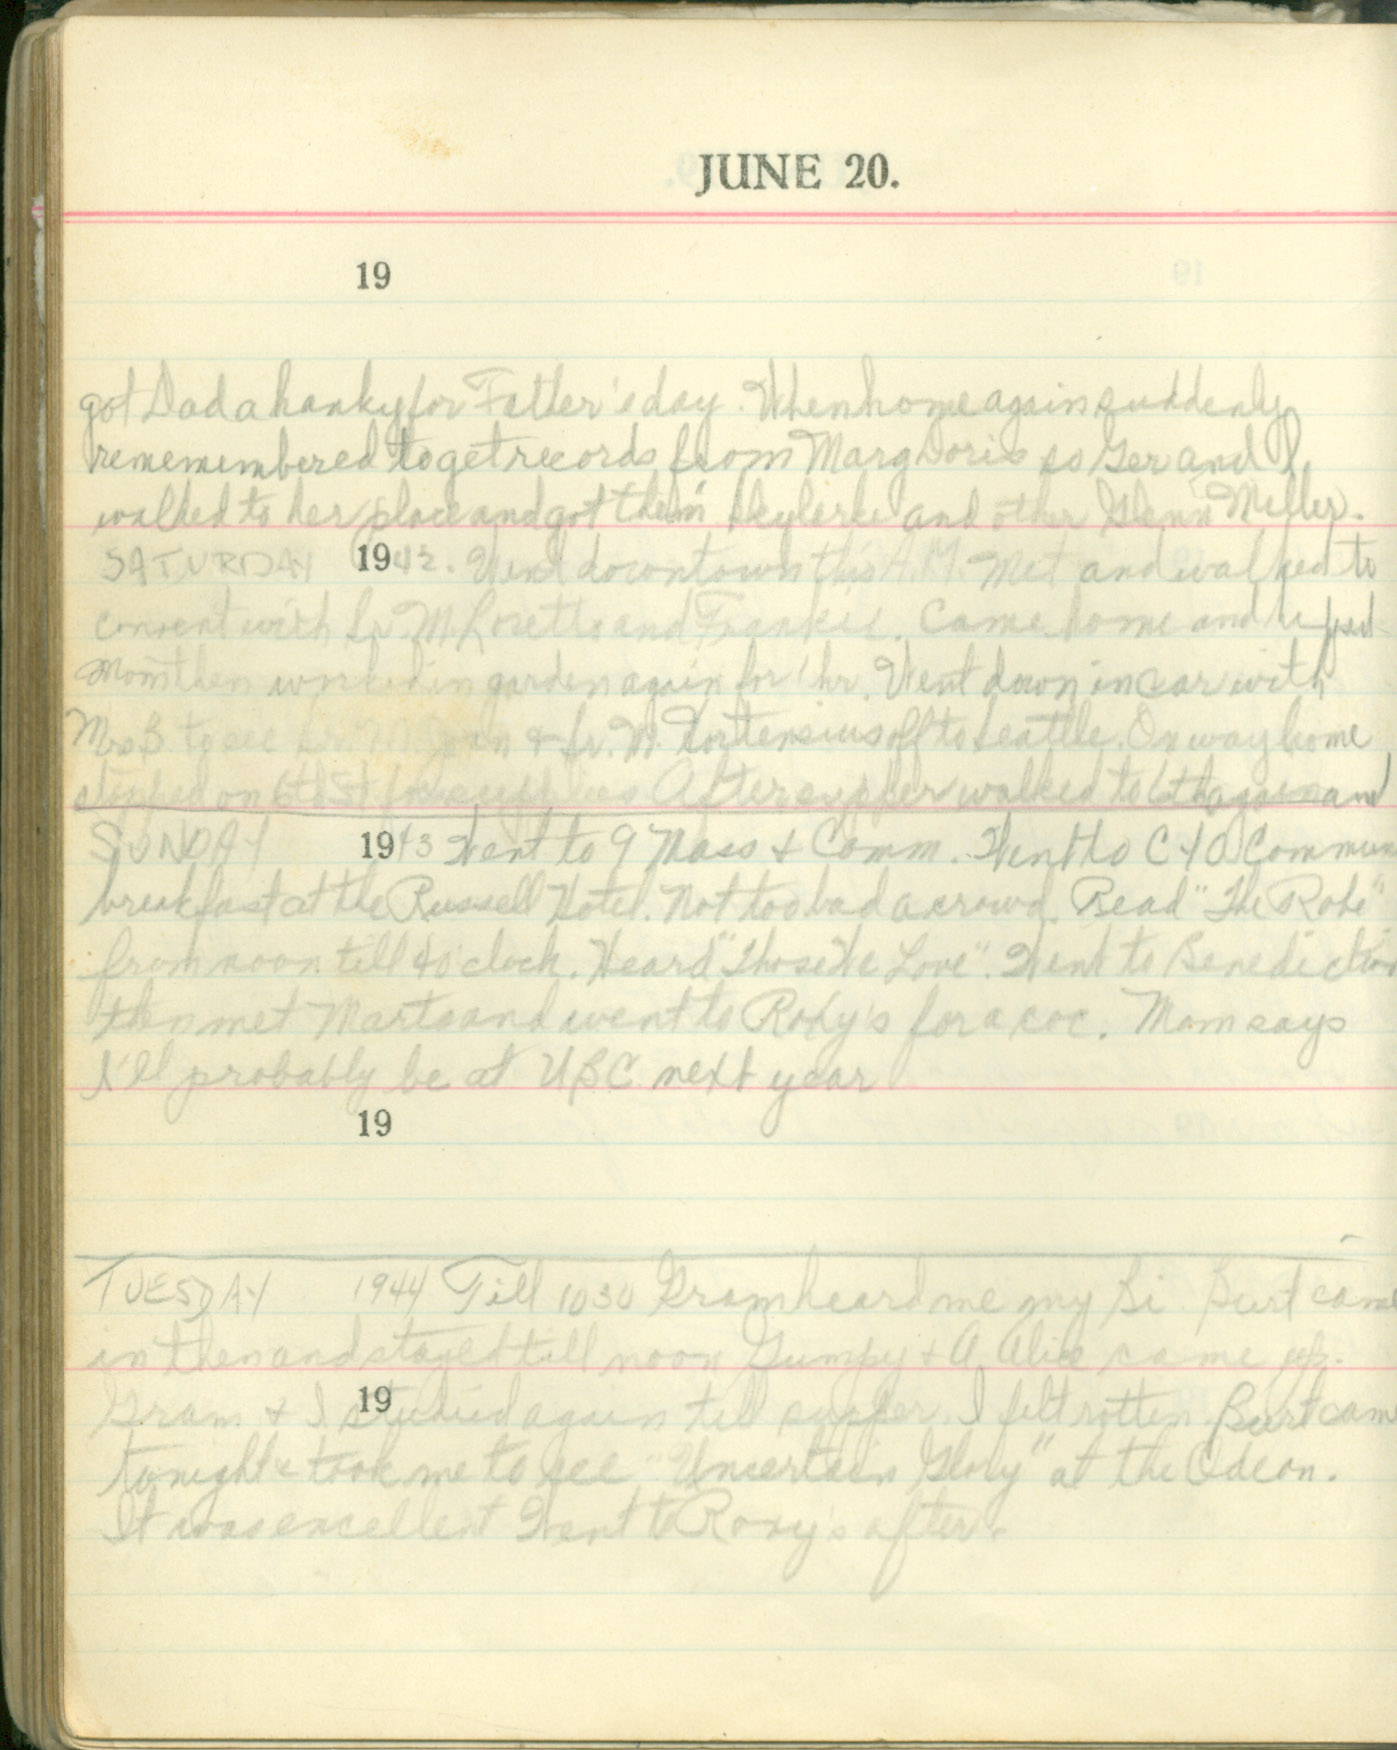 JUNE 20.
19
got Dad a hanky for Father's day. When home again suddenly
rememembered to get records from Marg Doris so Ger and I
walked to her place and got them. Skylark and other Glenn Miller.
SATURDAY 1942. Went downtown this A.M. Met and walked to
convent with Sr. M. Loretto and Frankie. Came home and helped
Mom then worked in garden again for 1 hr. Went down in car with
Mrs B. to see Sr. M. Joan & Sr. M. Hortensius off to Seattle. On way home
stopped on 6th St for After supper walked to 6th again and
SUNDAY 1943 Went to 9 Mass & Comm. Went to CYO Commun
breakfast at the Russell Hotel. Not too bad a crowd. Read "The Robe"
from noon till 4 o'clock. Heard "Those We Love". Went to Benediction
then met and went to Roxy's for a coc. Mom says
I'll probably be at UBC next year
19
TUESDAY 1944 Till 1030 Gram heard me my Bi Burt came
in then and stayed till noon Gumpy & A Alice came up.
19
Gram & I studied again till supper. I felt rotten. Burt came
tonight & took me to see "Uncertain Glory" at the Odeon.
It was excellent Went to Roxy's after.